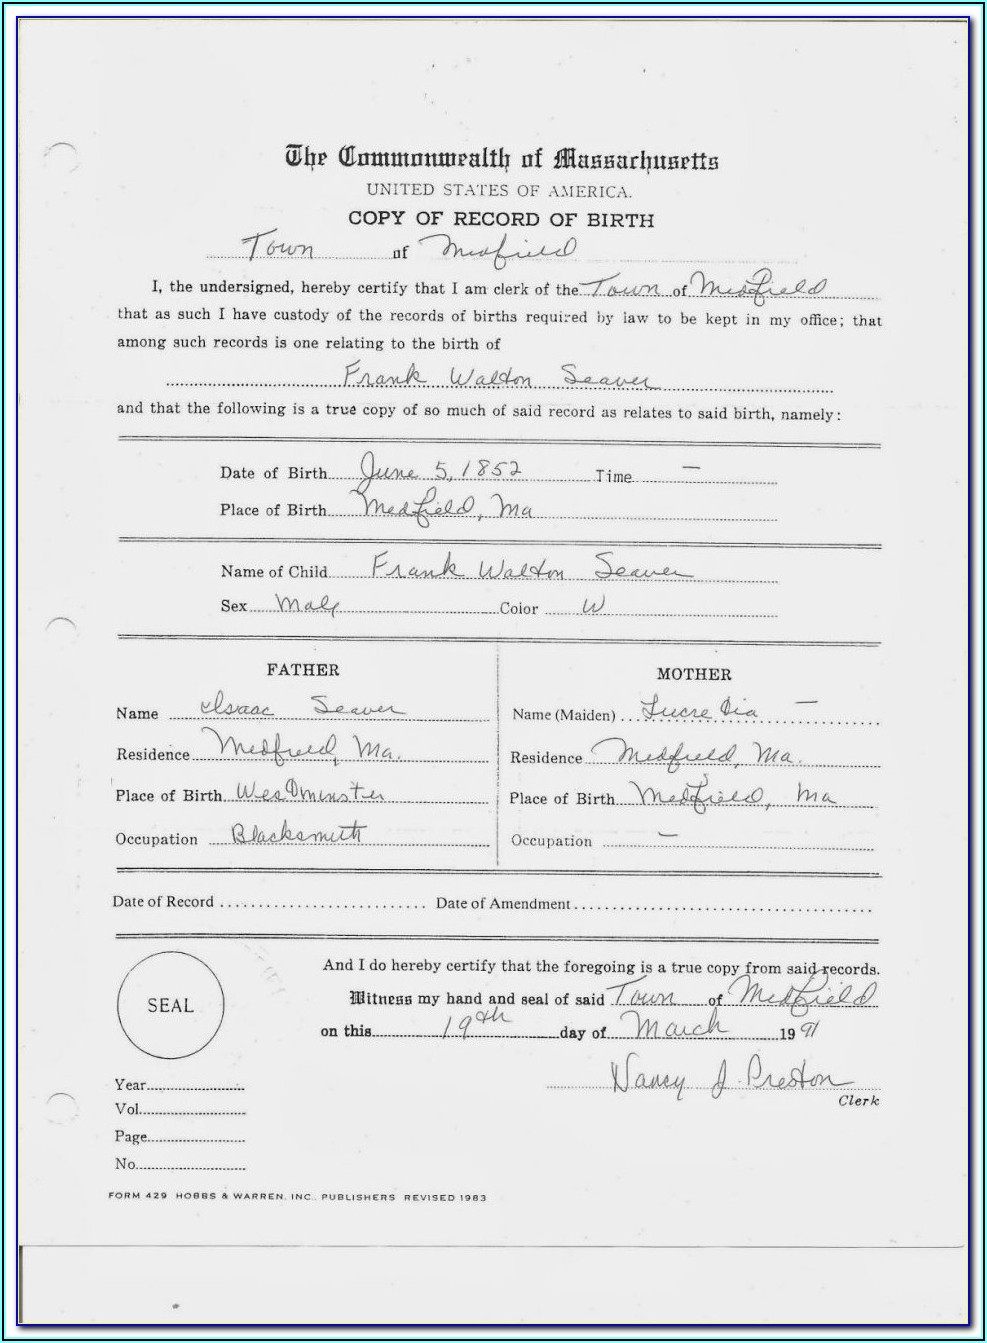 The Commonwealth of Massachusetts
UNITED STATES OF AMERICA.
COPY OF RECORD OF BIRTH
Town of Medfield
I, the undersigned, hereby certify that I am clerk of the Town of Medfield
that as such I have custody of the records of births required by law to be kept in my office; that
among such records is one relating to the birth of
Frank Walton Seaver
and that the following is a true copy of so much of said record as relates to said birth, namely:
Date of Birth June 5, 1852 Time —
Place of Birth Medfield, Ma
Name of Child Frank Walton Seaver
Sex Male Color W
FATHER
Name Isaac Seaver
Residence Medfield, Ma.
Place of Birth Westminster
Occupation Blacksmith
MOTHER
Name (Maiden) Lucretia —
Residence Medfield, Ma.
Place of Birth Medfield, Ma
Occupation —
Date of Record Date of Amendment
SEAL
And I do hereby certify that the foregoing is a true copy from said records.
Witness my hand and seal of said Town of Medfield
on this 19th day of March 1991
Nancy J. Preston
Clerk
Year
Vol.
Page
No.
FORM 429 HOBBS & WARREN, INC., PUBLISHERS REVISED 1983